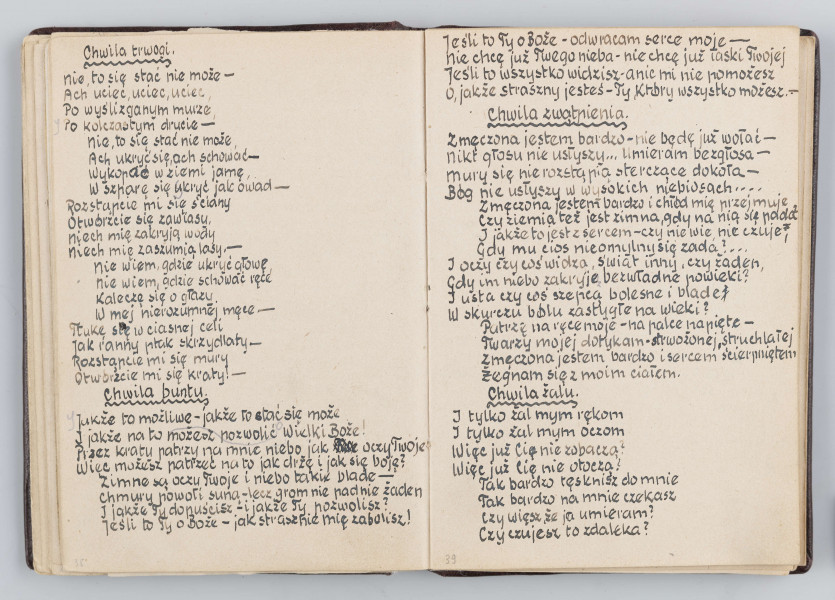 Chwila trwogi.
Nie, to się stać nie może —
Ach uciec, uciec, uciec,
Po wyślizganym murze,
Po kolczastym drucie —
Nie, to się stać nie może,
Ach ukryć się, ach schować —
Wykopać w ziemi jamę,
W szparę się ukryć jak owad —
Rozstąpcie mi się ściany
Otwórzcie się zawiasy,
Niech mię zakryją wody
Niech mię zaszumią lasy, —
Nie wiem, gdzie ukryć głowę
Nie wiem, gdzie schować ręce
Kaleczę się o głazy
W mej nierozumnej męce —
Tłukę się w ciasnej celi
Jak ranny ptak skrzydlaty —
Rozstąpcie mi się mury
Otwórzcie mi się kraty! —
Chwila buntu.
Jakże to możliwe - jakże to stać się może
I jakże na to możesz pozwolić Wielki Boże!
Przez kraty patrzy na mnie niebo jak oczy Twoje
Więc możesz patrzeć na to jak drżę i jak się boję?
Zimne są oczy Twoje i niebo takie blade —
Chmury powoli suną - lecz grom nie padnie żaden
I jakże Ty dopuścisz - i jakże Ty pozwolisz?
Jeśli to Ty o Boże - jak strasznie mię zabolisz!
35
Jeśli to Ty o Boże - odwracam serce moje —
Nie chcę już Twego nieba - nie chcę już łaski Twojej
Jeśli to wszystko widzisz - a nic mi nie pomożesz
O, jakże straszny jesteś - Ty, który wszystko możesz. —
Chwila zwątpienia.
Zmęczona jestem bardzo - nie będę już wołać —
Nikt głosu nie usłyszy... Umieram bezgłosa —
Mury się nie rozstąpią sterczące dokoła —
Bóg nie usłyszy w wysokich niebiosach....
Zmęczona jestem bardzo i chłód mię przejmuje
Czy ziemia też jest zimna, gdy na nią się pada?
I jakże to jest z sercem - czy nie wie nic czuje?
Gdy mu cios nieomylny się zada?...
I oczy czy coś widzą, świat inny, czy żaden,
Gdy im niebo zakryje, bezwładne powieki?
I usta czy coś szepcą bolesne i blade?
W skurczu bólu zastygłe na wieki?
Patrzę na ręce moje - na palce napięte —
Twarzy mojej dotykam - strwożonej, struchlałej
Zmęczona jestem bardzo i sercem ścierpniętem
Żegnam się z moim ciałem.
Chwila żalu.
I tylko żal mym rękom
I tylko żal mym oczom
Więc już Cię nie zobaczą?
Więc już Cię nie otoczą?
Tak bardzo tęsknisz do mnie
Tak bardzo na mnie czekasz
Czy wiesz, że ja umieram?
Czy czujesz to zdaleka?
39